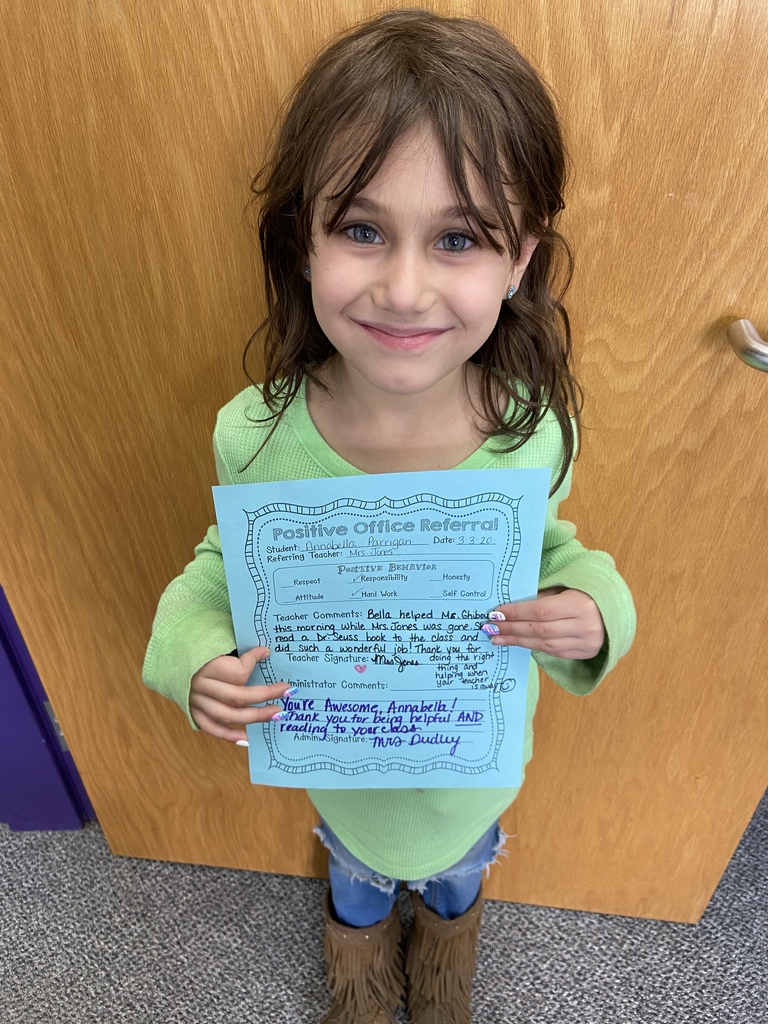 Positive Office Referral
Student: Annabella Parrigan Date: 3-3-20
Referring Teacher: Mrs. Jones
Positive Behavior
Respect ✓ Responsibility Honesty
Attitude ✓ Hard Work Self Control
Teacher Comments: Bella helped Ms. Ghibou
this morning while Mrs. Jones was gone.
read a Dr. Seuss book to the class and
did such a wonderful job! Thank you for
Teacher Signature: Mrs Jones doing the right
thing and
helping when
your teacher
Administrator Comments: is away
You're Awesome, Annabella!
Thank you for being helpful AND
reading to your class.
Admin. Signature: Mrs Dudley